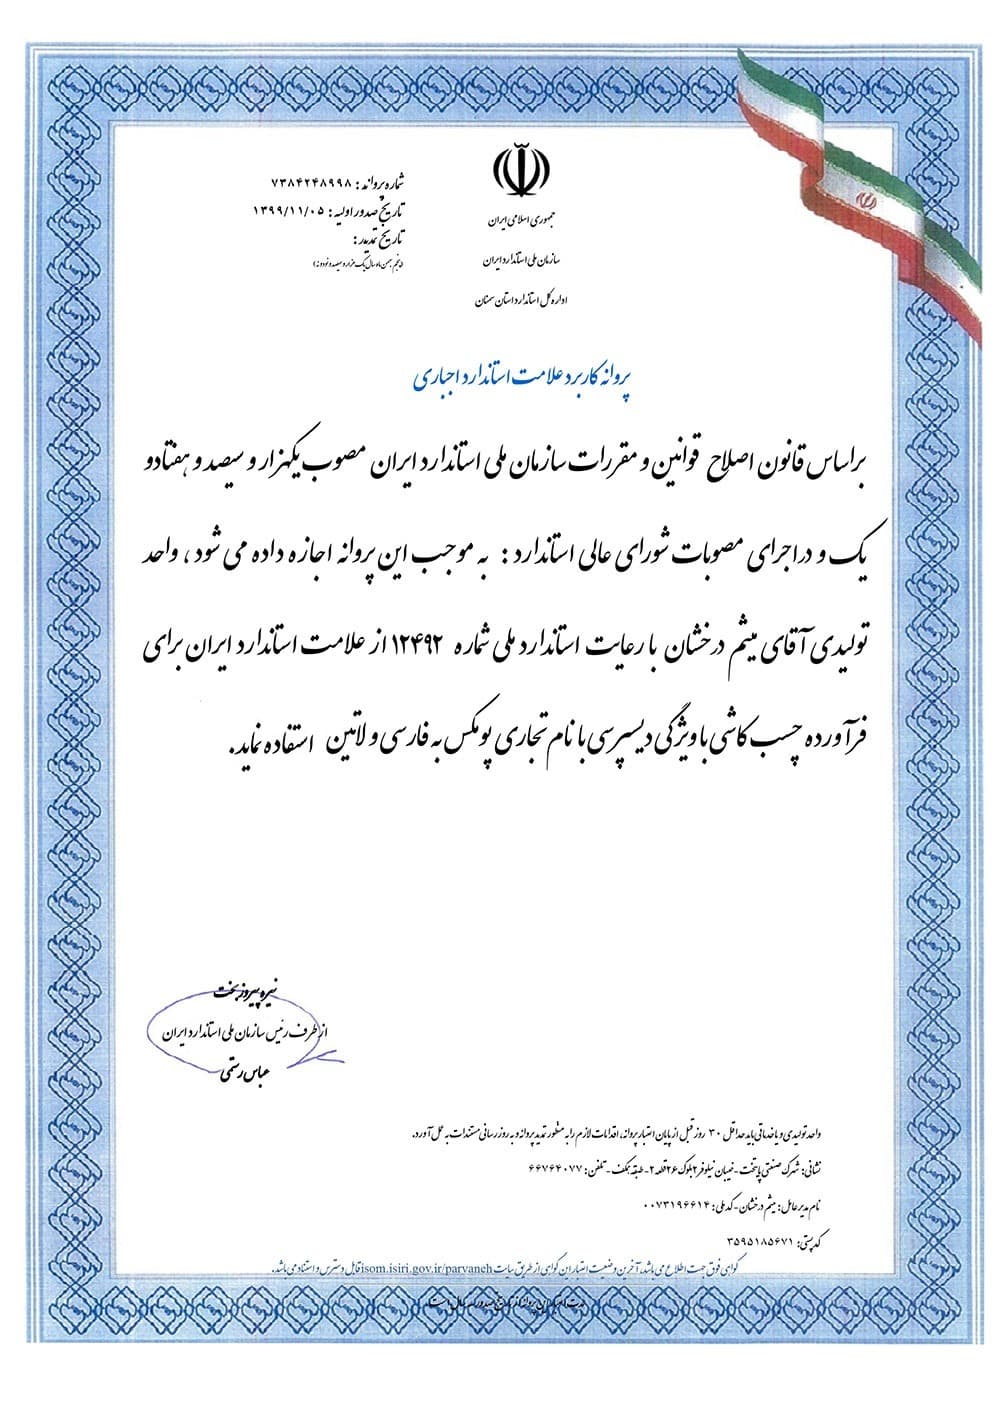 جمهوری اسلامی ایران
سازمان ملی استاندارد ایران
اداره کل استاندارد استان سمنان
شماره پروانه : ۷۳۸۴۲۴۸۹۹۸
تاریخ صدور اولیه : ۱۳۹۹/۱۱/۰۵
تاریخ تمدید :
(پنجم بهمن ماه سال یک هزار و سیصد و نود و نه)
پروانه کاربرد علامت استاندارد اجباری
براساس قانون اصلاح قوانین و مقررات سازمان ملی استاندارد ایران مصوب یکهزار و سیصد و هفتاد و
یک و در اجرای مصوبات شورای عالی استاندارد : به موجب این پروانه اجازه داده می شود ، واحد
تولیدی آقای میثم درخشان با رعایت استاندارد ملی شماره ۱۲۴۹۲ از علامت استاندارد ایران برای
فرآورده چسب کاشی با ویژگی دیسپرسی با نام تجاری پومکس به فارسی و لاتین استفاده نماید.
نیره پیروزبخت
از طرف رئیس سازمان ملی استاندارد ایران
عباس رستمی
واحد تولیدی و یا خدماتی باید حداقل ۳۰ روز قبل از پایان اعتبار پروانه، اقدامات لازم را به منظور تمدید پروانه و به روز رسانی مستندات به عمل آورد.
نشانی: شهرک صنعتی پایتخت - خیابان نیلوفر ۲ بلوک ۲۶ قطعه ۲ - طبقه همکف - تلفن: ۶۶۷۶۴۰۷۷
نام مدیرعامل: میثم درخشان - کد ملی: ۰۰۷۳۱۹۶۶۱۴
کد پستی: ۳۵۹۵۱۸۵۶۷۱
گواهی فوق جهت اطلاع می باشد، آخرین وضعیت اعتبار این گواهی از طریق سایت isom.isiri.gov.ir/parvaneh قابل دسترس و استناد می باشد.
مدت اعتبار این پروانه از تاریخ صدور سال است